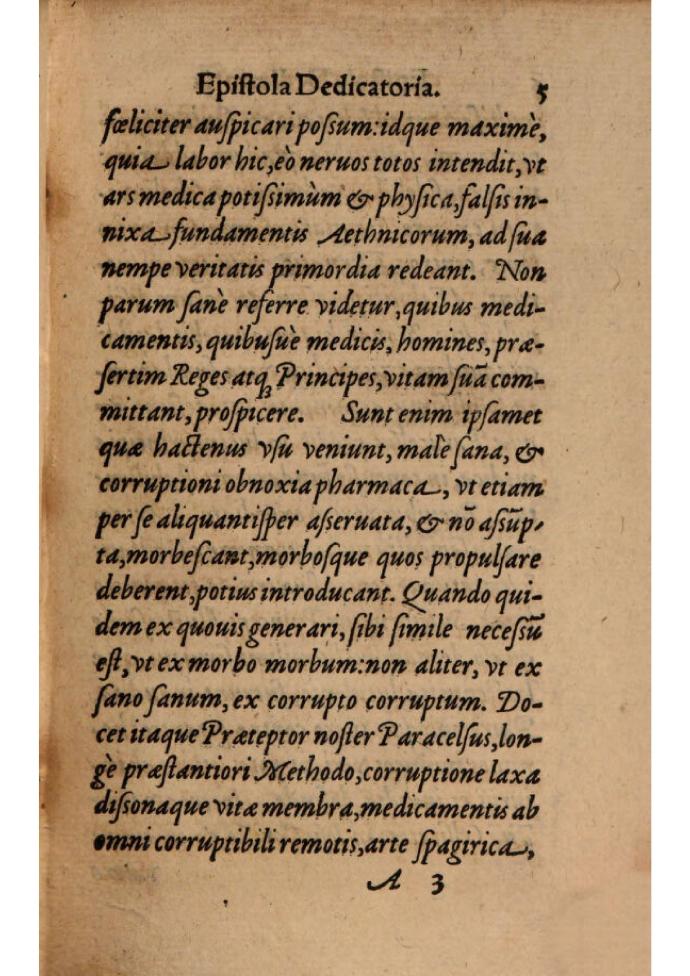 Epiſtola Dedicatoria. 5
fœliciter auſpicari poſsum:idque maximè,
quia labor hic,eò neruos totos intendit,vt
ars medica potiſsimùm & phyſica,falſis in-
nixa fundamentis Aethnicorum, ad ſua
nempe veritatis primordia redeant. Non
parum ſanè referre videtur,quibus medi-
camentis, quibuſuè medicis, homines, præ-
ſertim Reges atq; Principes,vitam ſuã com-
mittant, proſpicere. Sunt enim ipſamet
quæ hactenus vſu veniunt, malè ſana, &
corruptioni obnoxia pharmaca, vt etiam
per ſe aliquantiſper aſseruata, & nõ aſsũp-
ta,morbeſcant,morboſque quos propulſare
deberent,potius introducant. Quando qui-
dem ex quouis generari, ſibi ſimile neceſsũ
eſt, vt ex morbo morbum:non aliter, vt ex
ſano ſanum, ex corrupto corruptum. Do-
cet itaque Præteptor noſter Paracelſus,lon-
gè præſtantiori Methodo,corruptione laxa
diſsonaque vitæ membra,medicamentis ab
omni corruptibili remotis,arte ſpagirica,
A 3